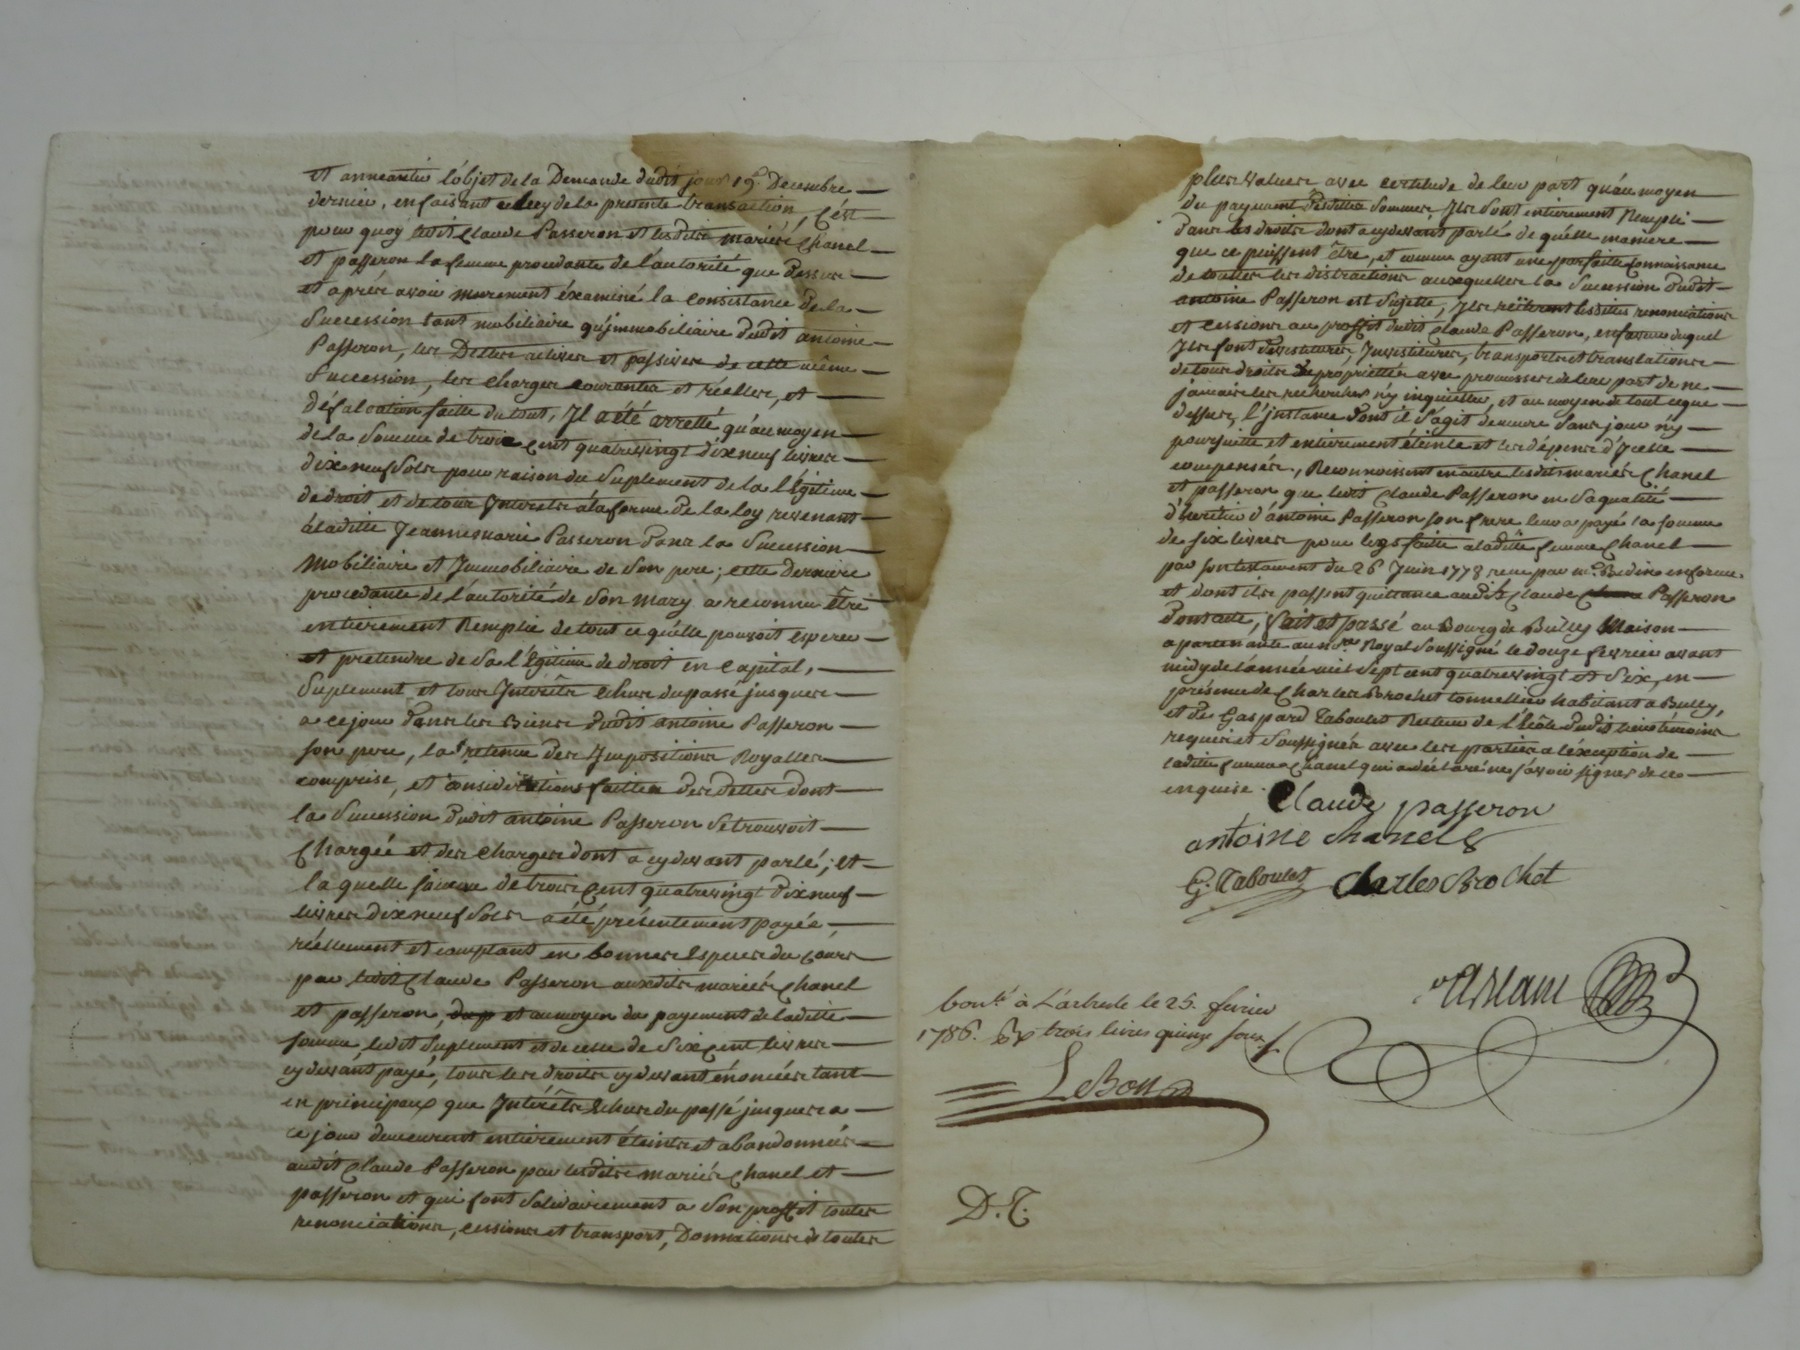 et anneantir l'objet de la Demande dudit jour 19e Decembre
dernier, en faisant de la presente transaction, c'est
pour quoy ledit Claude Passeron et lesdits mariés Chanel
et passeron la femme procedante de l'autorité que dessus
et aprés avoir murement éxaminé la Consistance de la
Succession tant mobiliaire qu'immobiliaire dudit antoine
Passeron, les Dettes actives et passives de cette même
Succession, les charges courantes et réelles, et
défalcation faitte du tout, Il a été arretté qu'au moyen
de la Somme de trois Cent quatrevingt dix neuf livres
dix neuf Sols pour raison du Suplement de la légitime
de droit et de tous Interets à la forme de la loy revenant
à laditte Jeanne marie Passeron dans la Succession
Mobiliaire et Immobiliaire de Son pere; cette derniere
procedante de l'autorité de Son mary a reconnu être
entierement Remplie de tout ce qu'elle pouvoit esperer
et pretendre de Sa légitime de droit en Capital,
Suplement et tous Interêts echus du passé jusques
a ce jour dans les Biens dudit antoine Passeron
son pere, la retenue des Impositions Royalles
comprise, et considerations faittes des dettes dont
la Succession dudit antoine Passeron se trouvoit
Chargée et des charges dont a cydevant parlé; et
la quelle somme de trois Cent quatrevingt dix neuf
livres dix neuf Sols a été présentement payée,
réellement et comptant en bonnes Especes du cours
par ledit Claude Passeron auxdits mariés Chanel
et passeron, et au moyen du payement de laditte
somme, ledit Suplement et de celle de Six cent livres
cy devant payé, tous les droits cy devant énoncés tant
en principaux que Interêts echus du passé jusques a
ce jour demeurent entierement éteints et abandonnés
audit Claude Passeron par lesdits mariés Chanel et
passeron et qui font Solidairement a Son proffit toutes
renonciations, cessions et transport, Donnations de toutes
plus values avec certitude de leur part qu'au moyen
du payement desdittes Sommes, Ils Sont entierement Rempli
dans les droits dont a cydevant parlé de quelle maniere
que ce puissent être, et comme ayant une parfaite Connaissance
de touttes les distractions auxquelles la Succession dudit
antoine Passeron est Sujette, Ils réïterent lesdittes renonciations
et cessions au proffit dudit Claude Passeron, en faveur duquel
Ils font devestitures, Investitures, transports et translations
de tous droits de proprietté avec promesses de leur part de ne
jamais les rechercher n'y inquietter, et au moyen de tout ce que
dessus, l'instance dont il S'agit demeure Sans jour n'y
poursuitte et entierement éteinte et les dépens d'Icelle
compensés, Reconnoissent en outre lesdits mariés Chanel
et passeron que ledit Claude Passeron en Sa qualité
d'heritier d'antoine Passeron son frere leur a payé la somme
de six livres pour legs faitte a laditte femme Chanel
par son testament du 26 Juin 1778 reçu par me. Bedin en forme
et dont ils passent quittance audit Claude Passeron
Dont acte, fait et passé au Bourg de Bully Maison
apartenante au nre Royal Soussigné le douze fevrier avant
midy de l'année mil Sept cent quatrevingt et Six, en
présence de Charles Brochet tonnellier habitant a Bully,
et de Gaspard Taboulet Recteur de l'école dudit lieu témoins
requis et Soussignés avec les parties a l'éxception de
laditte femme Chanel qui a déclaré ne sçavoir signer de ce
enquise.
Claude passeron
antoine chanel
G. Taboulet Charles Brochet
Contlé à L'arbresle le 25. fevrier
1786. trois livres quinze sous
LeBon
D.T.